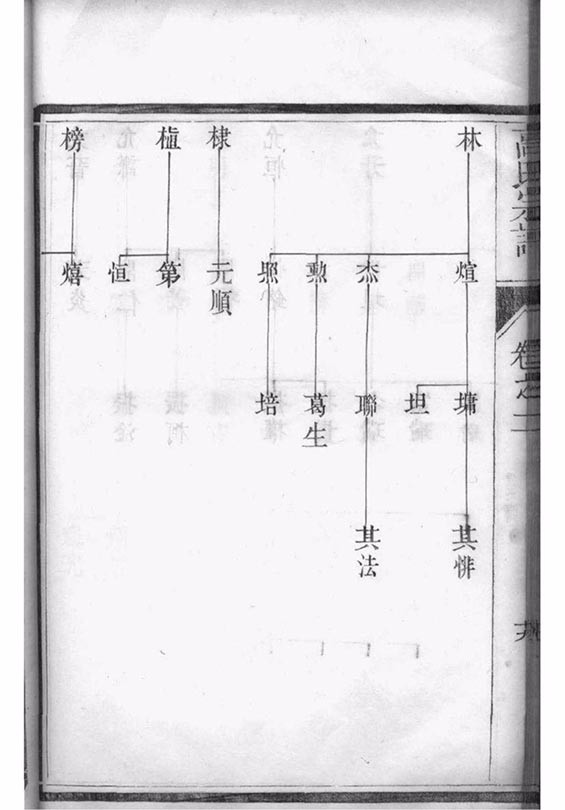 高氏宗譜
卷之二
林
棣
樞
榜
煊
杰
勲
照
元順
第
恒
熺
墉
坦
聯
葛生
培
其悱
其法